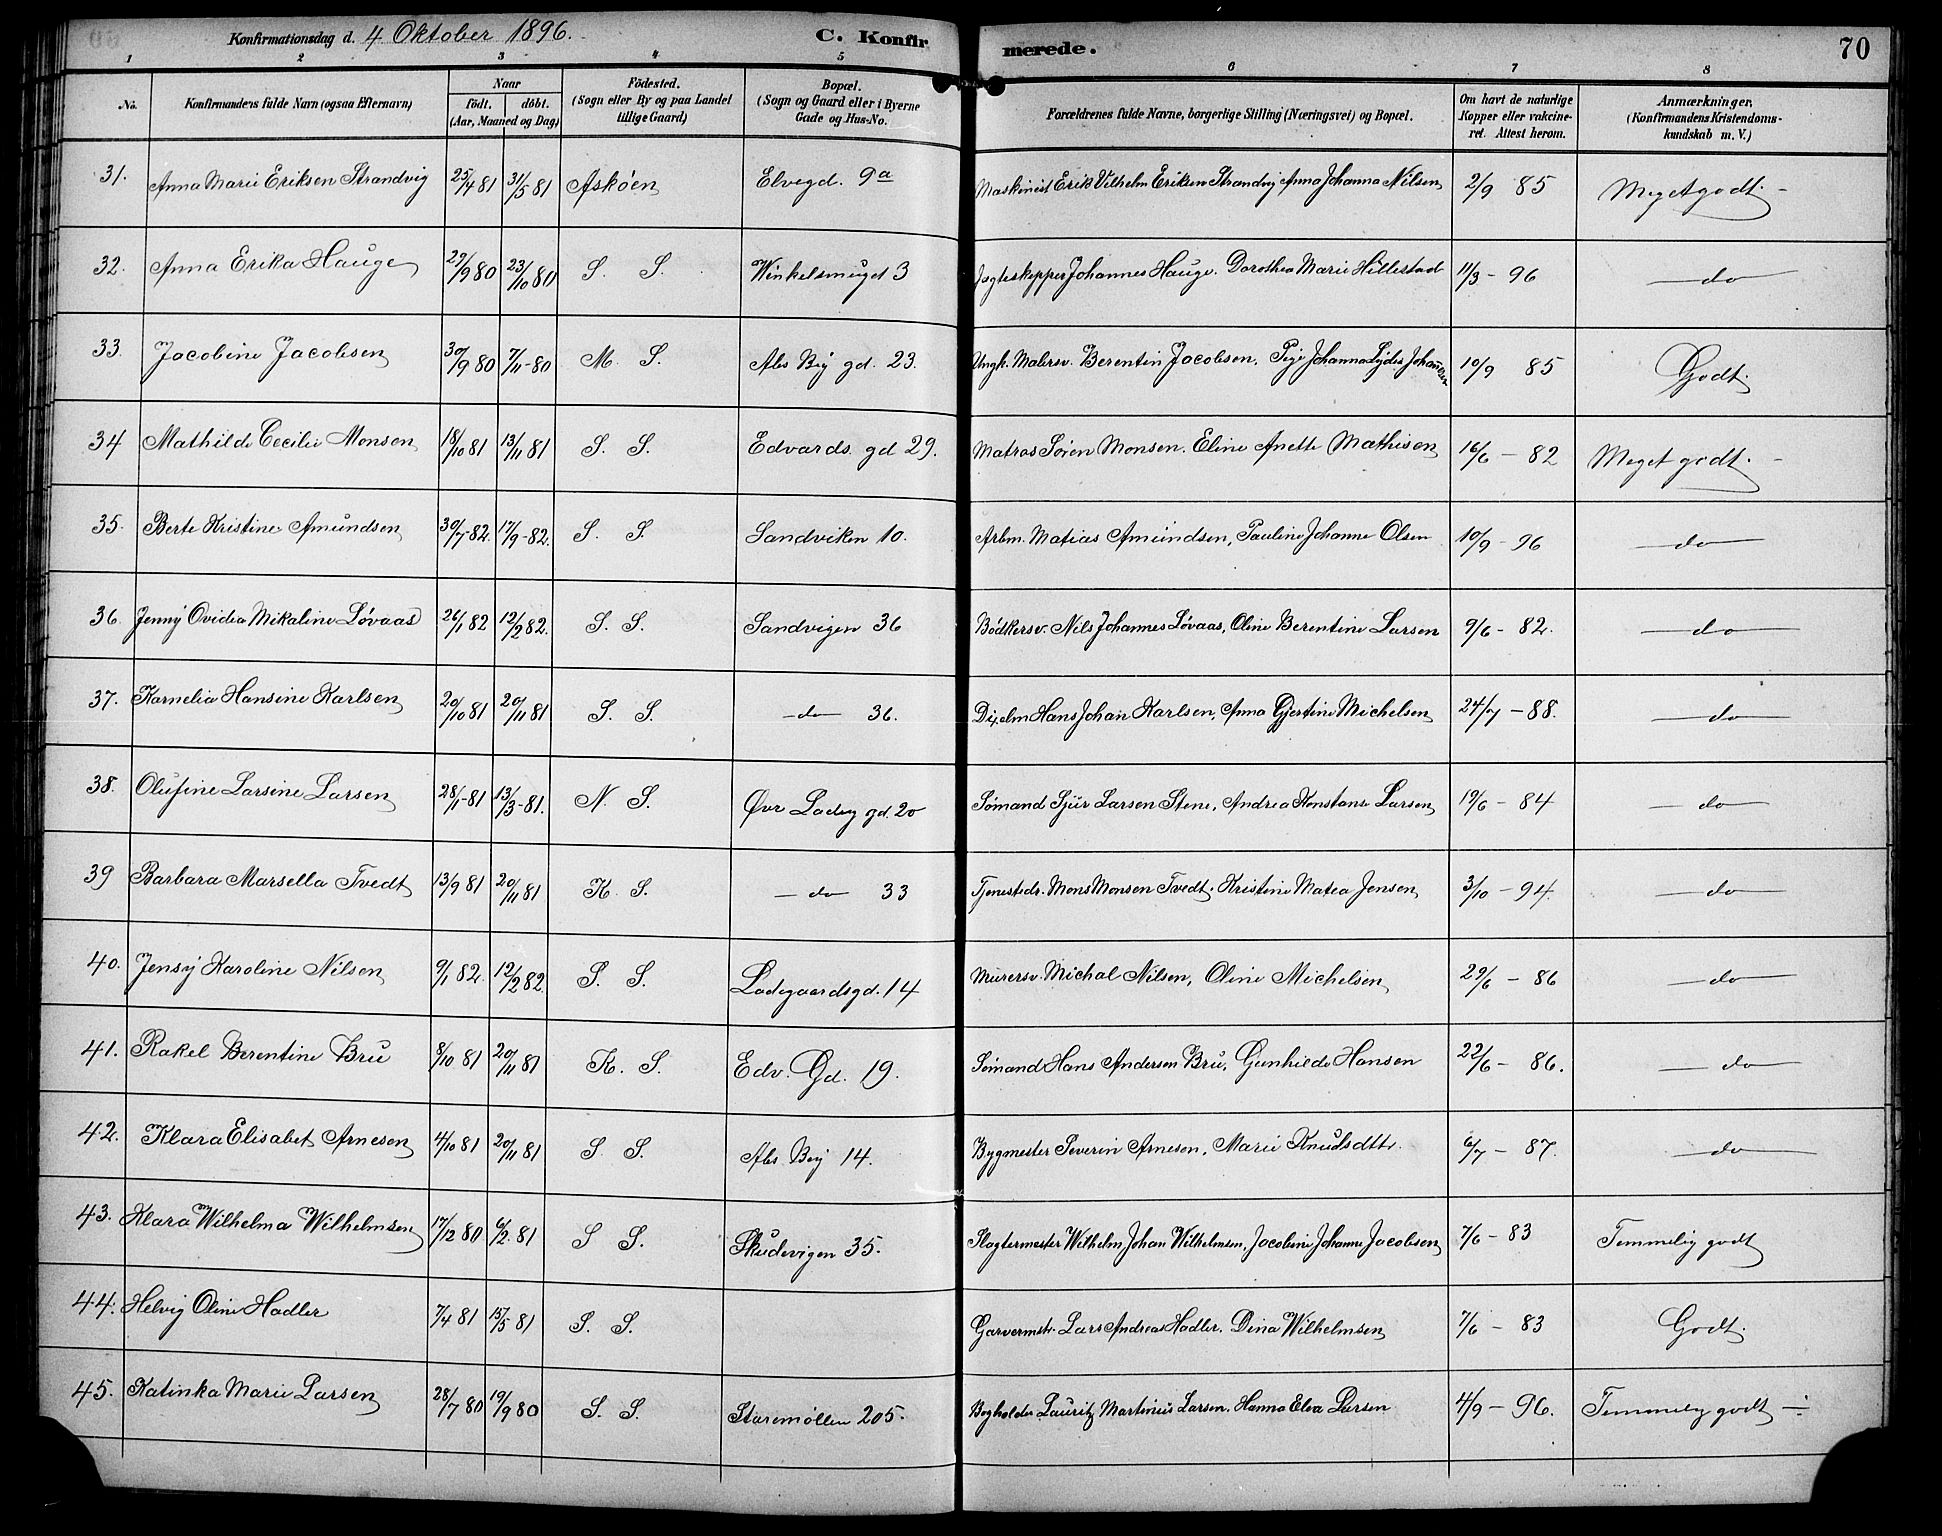 Konfirmationsdag d. 4 Oktober 1896. C. Konfir merede. 70
1 2 3 4 5 6 7 8
No. Konfirmandens fulde Navn (ogsaa Efternavn) Naar födt. döbt. (Aar, Maaned og Dag) Födested. (Sogn eller By og paa Landet tillige Gaard) Bopæl. (Sogn og Gaard eller i Byerne Gade og Hus-No. Forældrenes fulde Navne, borgerlige Stilling (Næringsvei) og Bopæl. Om havt de naturlige Kopper eller vakcineret. Attest herom. Anmærkninger. (Konfirmandens Kristendomskundskab m. V.)
31. Anna Marie Eriksen Strandvig 25/4 81 31/5 81 Askøen Elvegd. 9a Maskinist Erik Vilhelm Eriksen Strandvig Anna Johanna Nilsen 2/9 85 Meget godt. -
32. Anna Erika Hauge 29/9 80 23/10 80 S. S. Winkelsmugt 3 Jagteskypper Johannes Hauge. Dorothea Marie Hillestad 11/3 - 96 do
33. Jacobine Jacobsen 30/9 80 7/11 - 80 M. S. Abs Bij gd. 23. Ungk. Malersv. Berentin Jacobsen. Pige Johanna Lydia 10/9 85 Godt.
34 Mathilde Cecilie Monsen 18/10 81 13/11 81 S. S. Edvards. gd 29. Matros Søren Monsen. Eline Anette Mathisen 16/6 - 82 Meget godt. -
35. Berte Kristine Amundsen 30/7 - 82. 17/9 - 82. S. S. Sandviken 10. Arbm. Matias Amundsen, Pauline Johanne Olsen 10/9 - 96 do
36. Jenny Ovidia Mikaline Løvaas 26/1 82 12/2 82. S. S. Sandvigen 36 Bödkersv. Nils Johannes Løvaas, Oline Berentine Larsen 9/6 - 82. do
37. Kornelia Hansine Karlsen 20/10 81 20/11 81 S. S. do 36. Hans Johan Karlsen, Anna Gjertine Michelsen 24/7 - 88. do
38. Olufine Larsine Larsen 28/1 - 81 13/3 - 81. N. S. Øvr Ladeg gd. 20 Sømand Sjur Larsen Stene, Andrea Konstanse Larsen 19/6 - 84 do
39 Barbara Marsella Tvedt 13/9 81 20/11 81 K. S. do 33 Tjenestdr. Mons Monsen Tvedt. Kristine Matea Jensen 3/10 - 94. do
40. Jensy Karoline Nilsen 9/1 82. 12/2 82. S. S. Ladegaardsgd. 14 Murersv. Michal Nilsen, Oline Michelsen 29/6 - 86 do
41. Rakel Berentine Bru 8/10 81 20/11 81 K. S. Edv. Gd. 19. Sømand Hans Andersen Bru, Gunhilde Hansen 22/6 - 86. do
42. Klara Elisabet Arnesen 4/10 81 20/11 81 S. S. Abs. Bij 14. Bygmester Severin Arnesen, Marie Knudsdttr. 6/7 - 87. do
43. Klara Wilhelma Wilhelmsen 17/12 80 6/2. 81 S S. Skudevigen 35. Slagtermester Wilhelm Johan Wilhelmsen, Jacobine Johanne Jacobsen 7/6 - 83 Temmelig godt
44. Helvig Oline Hadler 7/4 81 15/5 81 S. S. Garvermstr. Lars Andreas Hadler. Dina Wilhelmsen 7/6 - 83 Godt.
45. Katinka Marie Larsen 28/7 80 19/9 80 S. S. Støremøllen 205. Bogholder Lauritz Martinius Larsen. Hanna Elva Larsen 4/9 - 96. Temmelig godt -